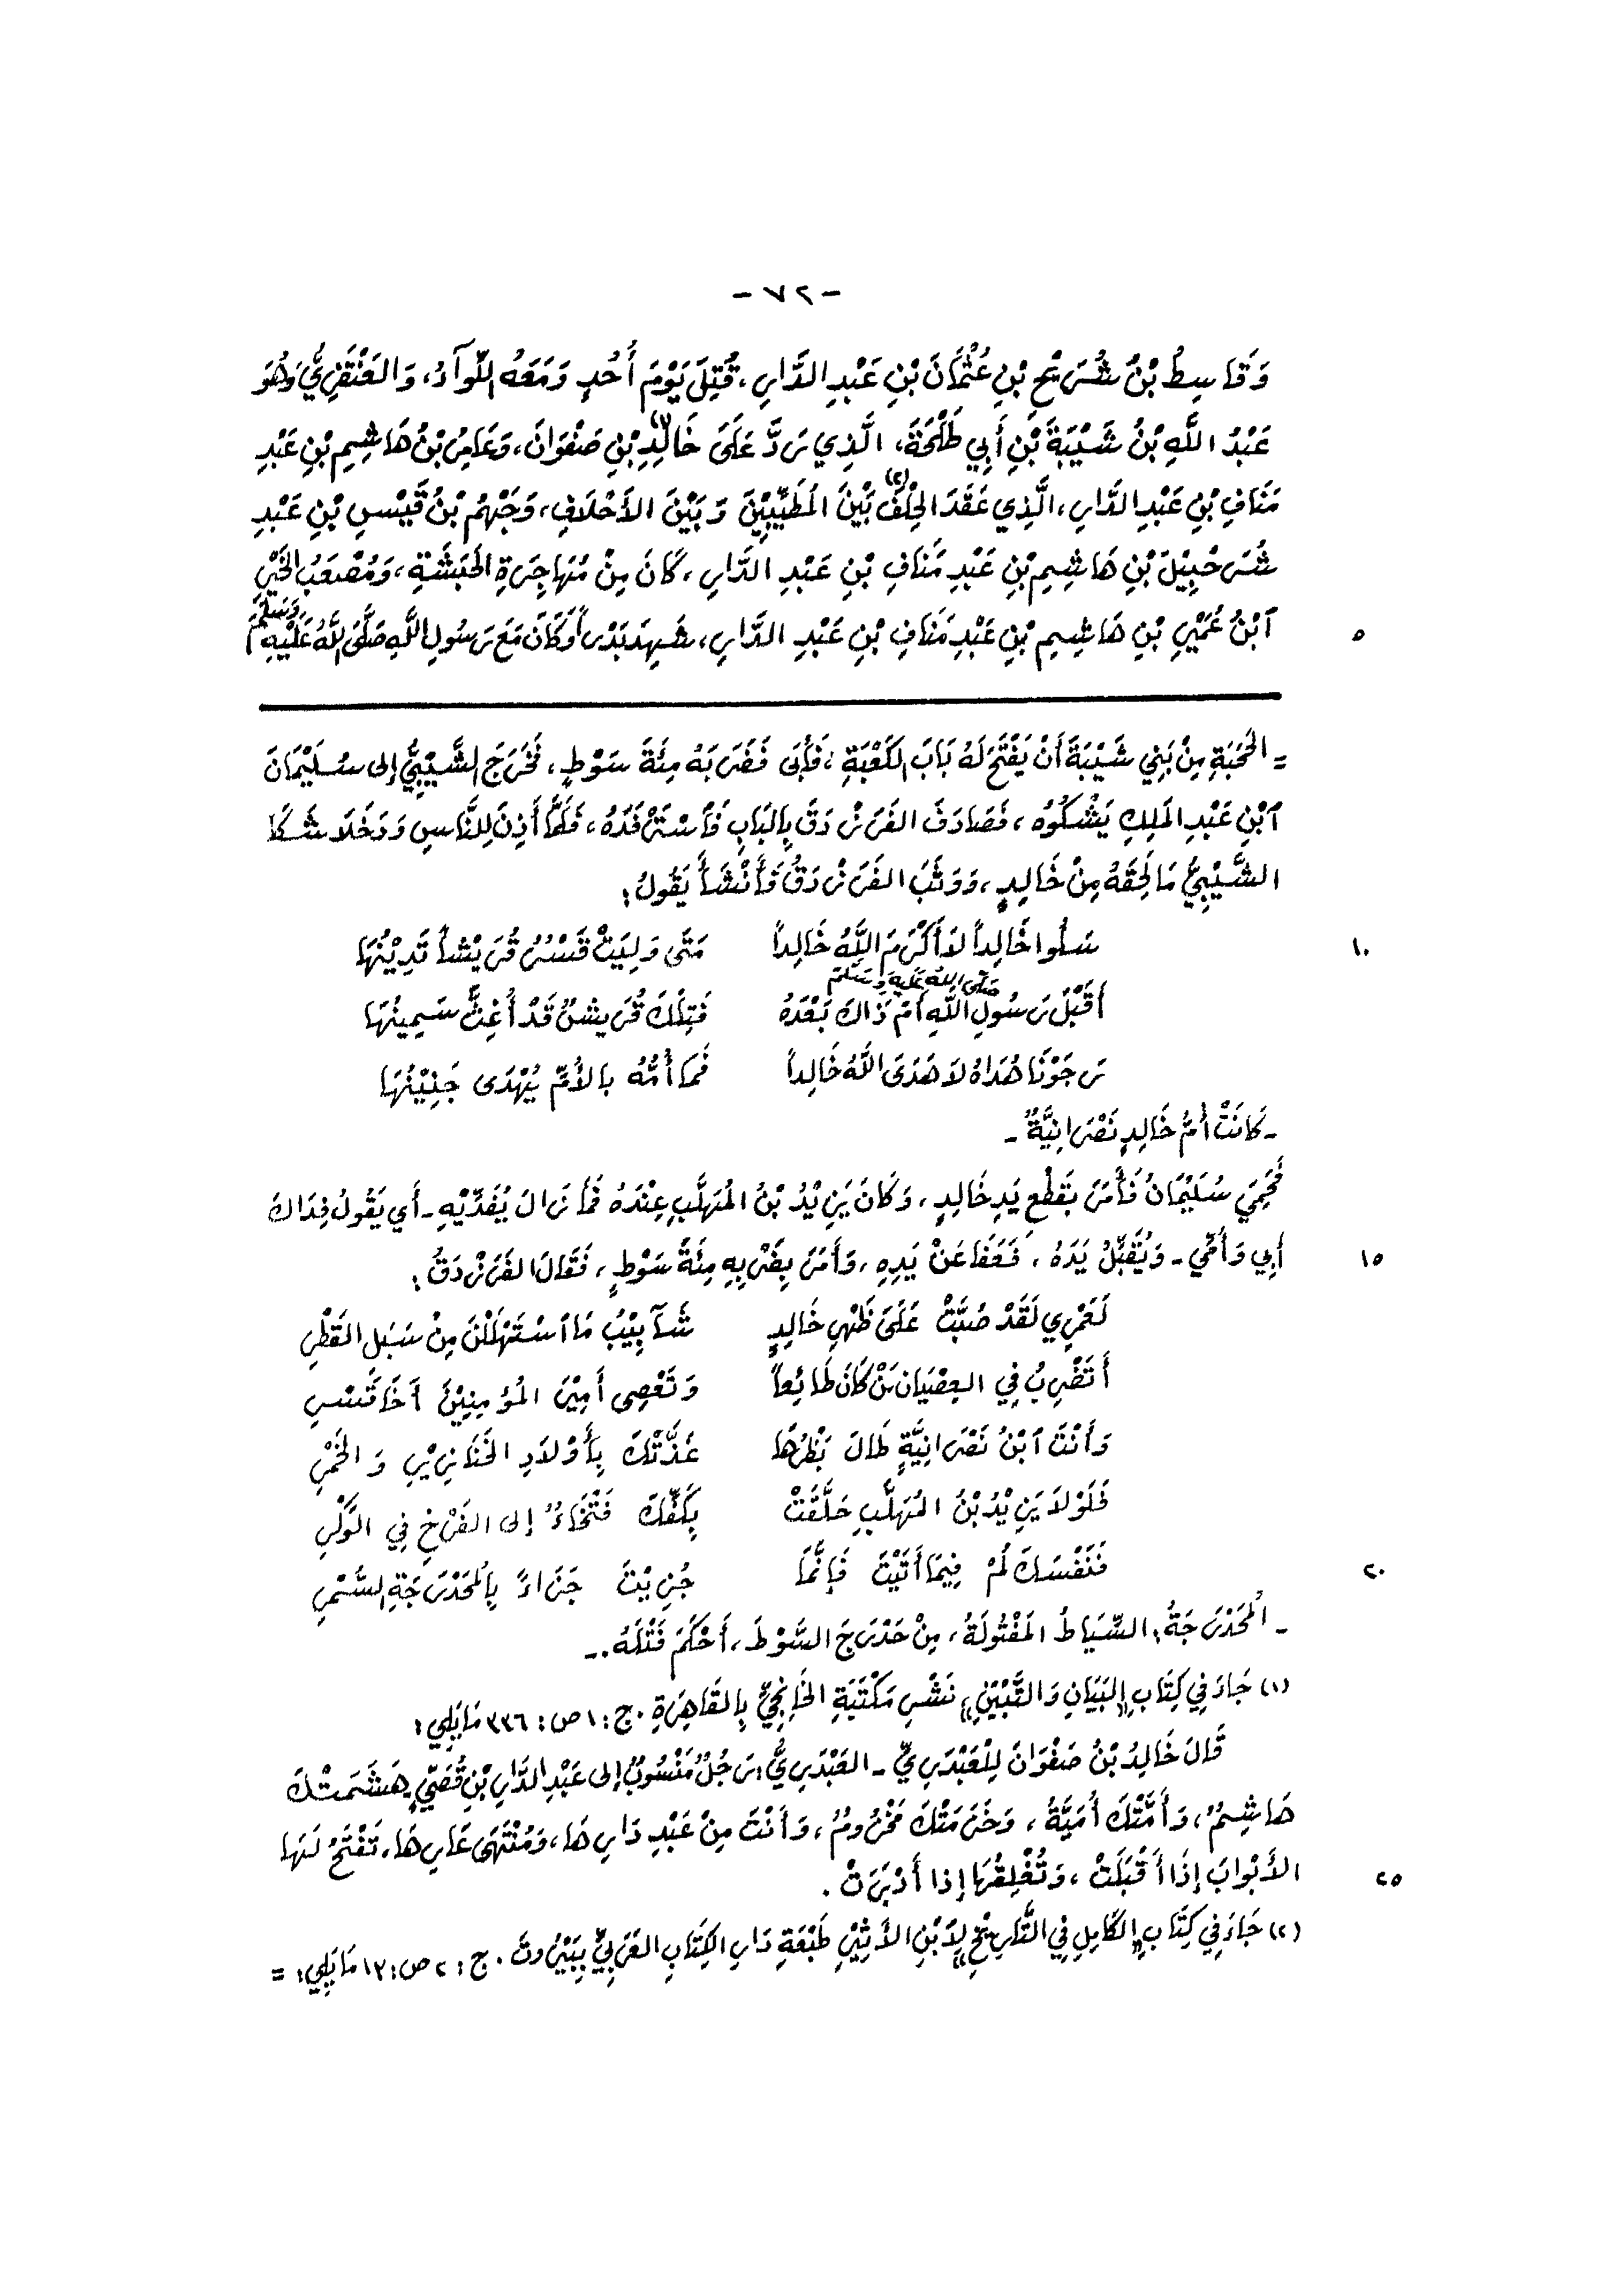 - ٧٢ -
وَقَاسِطُ بْنُ شُرَيْحِ بْنِ عُثْمَانَ بْنِ عَبْدِ الدَّارِ، قُتِلَ يَوْمَ أُحُدٍ وَمَعَهُ اللِّوَآءُ، وَالعَنْقَزِيُّ وَهُوَ
عَبْدُ اللَّهِ بْنُ شَيْبَةَ بْنِ أَبِي طَلْحَةَ، الَّذِي رَدَّ عَلَى خَالِدِ(١) بْنِ صَفْوَانَ، وَعَامِرُ بْنُ هَاشِمِ بْنِ عَبْدِ
مَنَافِ بْنِ عَبْدِ الدَّارِ، الَّذِي عَقَدَ الحِلْفَ(٢) بَيْنَ المُطَيِّبِيْنَ وَبَيْنَ الأَحْلَافِ، وَجَهْمُ بْنُ قَيْسِ بْنِ عَبْدِ
شُرَحْبِيْلَ بْنِ هَاشِمِ بْنِ عَبْدِ مَنَافِ بْنِ عَبْدِ الدَّارِ، كَانَ مِنْ مُهَاجِرَةِ الحَبَشَةِ، وَمُصْعَبُ الخَيْرِ
٥ ٱبْنُ عُمَيْرِ بْنِ هَاشِمِ بْنِ عَبْدِ مَنَافِ بْنِ عَبْدِ الدَّارِ، شَهِدَ بَدْراً وَكَانَ مَعَ رَسُولِ اللَّهِ صَلَّى اللَّهُ عَلَيْهِ وَسَلَّمَ
= الحَجَبَةِ مِنْ بَنِي شَيْبَةَ أَنْ يَفْتَحَ لَهُ بَابَ الكَعْبَةِ، فَأَبَى فَضَرَبَهُ مِئَةَ سَوْطٍ، فَخَرَجَ الشَّيْبِيُّ إلى سُلَيْمَانَ
ٱبْنِ عَبْدِ المَلِكِ يَشْكُوْهُ، فَصَادَفَ الفَرَزْدَقَ بِالبَابِ فَٱسْتَرْفَدَهُ، فَلَمَّا أَذِنَ لِلنَّاسِ وَدَخَلَا شَكَا
الشَّيْبِيُّ مَا لَحِقَهُ مِنْ خَالِدٍ، وَوَثَبَ الفَرَزْدَقُ فَأَنْشَأَ يَقُولُ:
١٠ سَلُوا خَالِداً لَا أَكْرَمَ اللَّهُ خَالِداً مَتَى وَلِيَتْ قَسْرٌ قُرَيْشاً تَدِيْنُهَا
أَقَبْلَ رَسُولِ اللَّهِ صَلَّى اللَّهُ عَلَيْهِ وَسَلَّمَ أَمْ ذَاكَ بَعْدَهُ فَتِلْكَ قُرَيشٌ قَدْ أُغِثَّ سَمِينُهَا
رَجَوْنَا هُدَاهُ لَا هَدَى اللَّهُ خَالِداً فَمَا أُمُّهُ بالأُمِّ يُهْدَى جَنِيْنُهَا
- كَانَتْ أُمُّ خَالِدٍ نَصْرَانِيَّةً -
فَحَمِيَ سُلَيْمَانُ فَأَمَرَ بِقَطْعِ يَدِ خَالِدٍ، وَكَانَ يَزِيْدُ بْنُ المُهَلَّبِ عِنْدَهُ فَمَا زَالَ يُفَدِّيْهِ - أَي يَقُولُ فِدَاكَ
١٥ أَبِي وَأُمِّي - وَيُقَبِّلُ يَدَهُ، فَعَفَا عَنْ يَدِهِ، وَأَمَرَ بِضَرْبِهِ مِئَةَ سَوْطٍ، فَقَالَ الفَرَزْدَقُ:
لَعَمْرِي لَقَدْ صُبَّتْ عَلَى ظَهْرِ خَالِدٍ شَآبِيْبُ مَا ٱسْتَهْلَلْنَ مِنْ سَبَلِ القَطْرِ
أَتَضْرِبُ فِي العِصْيَانِ مَنْ كَانَ طَائِعاً وَتَعْصِي أَمِيْرَ المُؤْمِنِيْنَ أَخَا قَسْرِ
وَأَنْتَ ٱبْنُ نَصْرَانِيَّةٍ طَالَ بَظْرُهَا غَذَّتْكَ بِأَوْلَادِ الخَنَازِيْرِ وَالخَمْرِ
فَلَوْلَا يَزِيْدُ بْنُ المُهَلَّبِ حَلَّقَتْ بِكَفِّكَ فَتْخَاءُ إلى الفَرْخِ فِي الوَكْرِ
٢٠ فَنَفْسَكَ لُمْ فِيمَا أَتَيْتَ فَإِنَّمَا جُزِيْتَ جَزَاءً بِالمُحَدْرَجَةِ السُّمْرِ
- المُحَدْرَجَةُ: السِّيَاطُ المَفْتُولَةُ، مِنْ حَدْرَجَ السَّوْطَ، أَحْكَمَ فَتْلَهُ. -
(١) جَاءَ فِي كِتَابِ «البَيَانِ وَالتَّبْيِيْنِ» نَشْرِ مَكْتَبَةِ الخَانِجِيِّ بِالقَاهِرَةِ. ج: ١ ص: ٣٣٦ مَا يَلِي:
قَالَ خَالِدُ بْنُ صَفْوَانَ لِلْعَبْدَرِيِّ - العَبْدَرِيُّ: رَجُلٌ مَنْسُوبٌ إلى عَبْدِ الدَّارِ بْنِ قُصَيٍّ - هَشَمَتْكَ
هَاشِمٌ، وَأَمَّتْكَ أُمَيَّةُ، وَخَزَمَتْكَ مَخْزُومٌ، وَأَنْتَ مِنْ عَبْدِ دَارِهَا، وَمُنْتَهَى عَارِهَا، تَفْتَحُ لَهَا
٢٥ الأَبْوَابَ إِذَا أَقْبَلَتْ، وَتُغْلِقُهَا إذا أَدْبَرَتْ.
(٢) جَاءَ فِي كِتَابِ «الكَامِلِ فِي التَّارِيْخِ» لِٱبْنِ الأَثِيْرِ طَبْعَةِ دَارِ الكِتَابِ العَرَبِيِّ بِبَيْرُوتَ. ج: ٢ ص: ١٣ مَا يَلِي: =